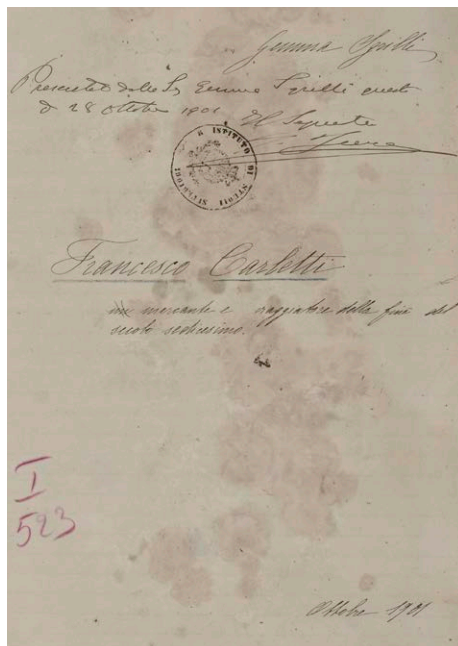 Gemma Sgrilli
Presentato dalla Sa Gemma Sgrilli questo
dì 28 ottobre 1901 Il Segreto
R ISTITUTO DI STUDII SUPERIORI
Francesco Carletti
mercante e viaggiatore della fine del
secolo sedicesimo.
I
523
Ottobre 1901